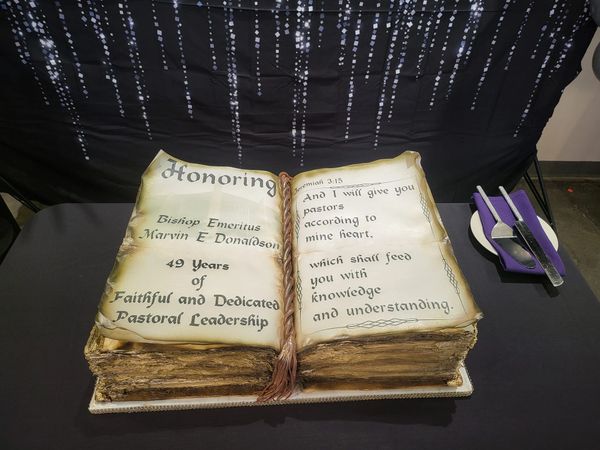 Honoring
Bishop Emeritus
Marvin E Donaldson
49 Years
of
Faithful and Dedicated
Pastoral Leadership
Jeremiah 3:15
And I will give you
pastors
according to
mine heart,
which shall feed
you with
knowledge
and understanding.